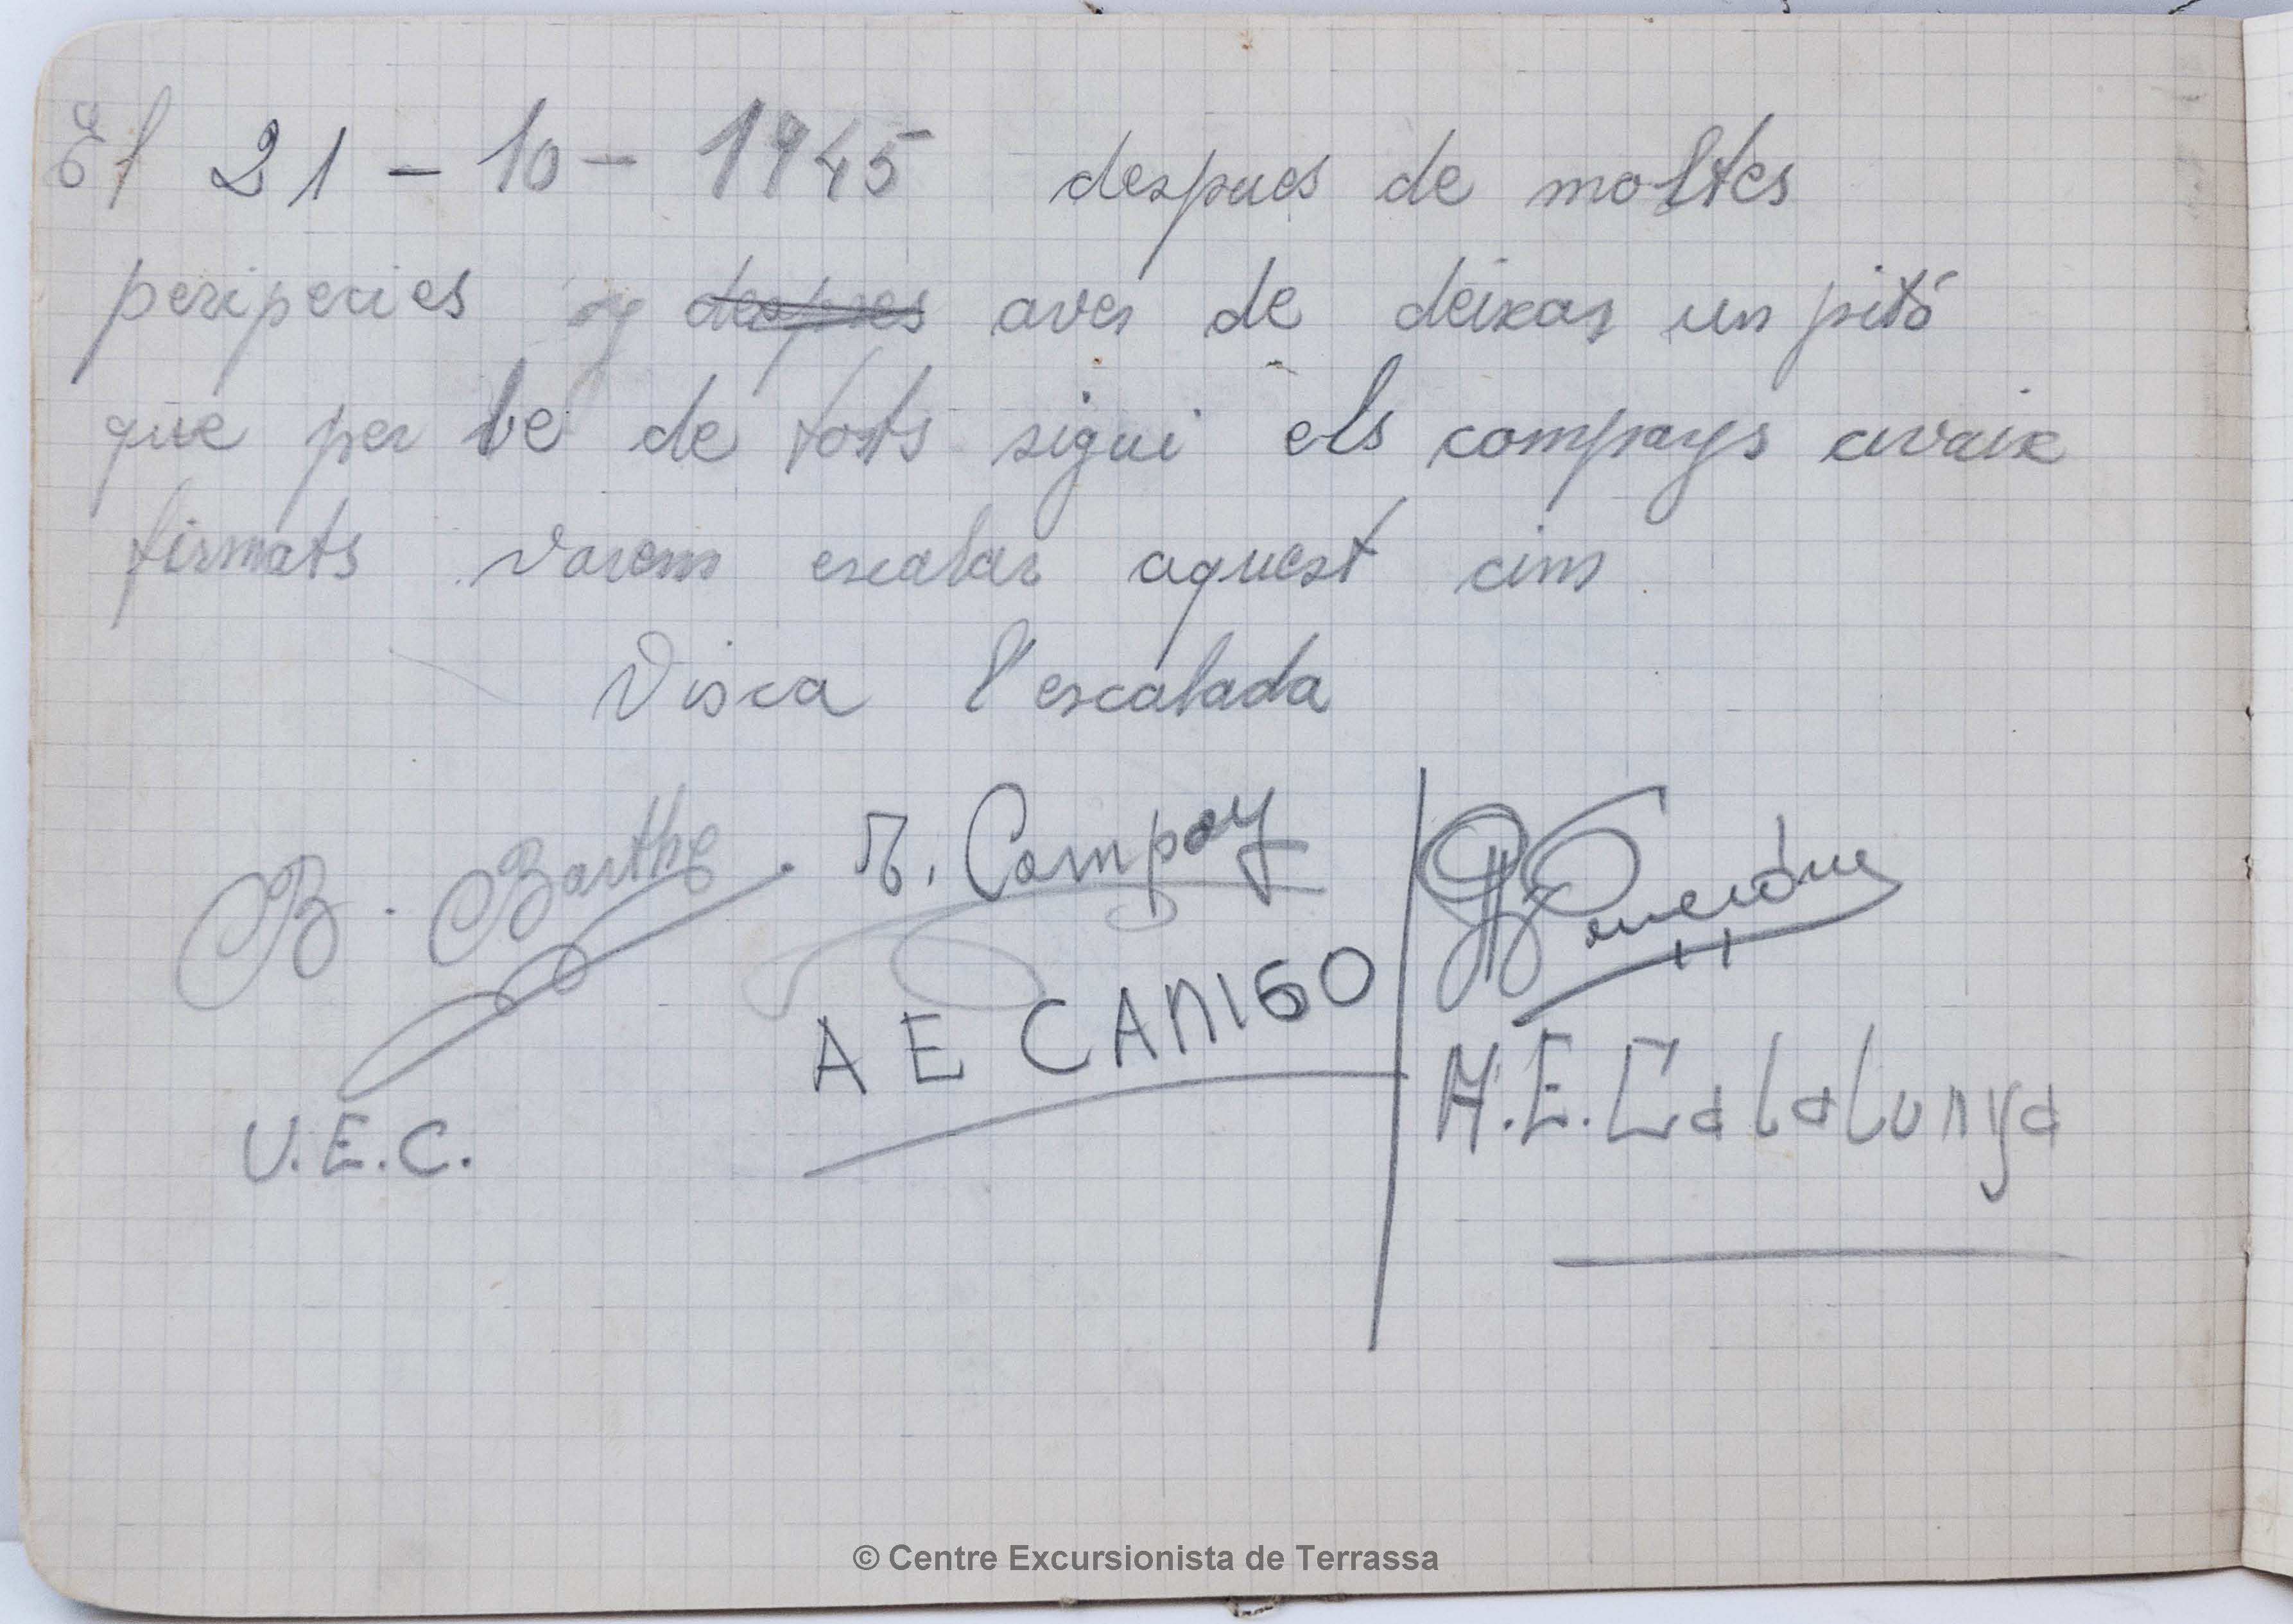 El 21 - 10 - 1945 despues de moltes
peripecies y despres aver de deixar un pitó
que per be de tots sigui els companys avaix
firmats varem escalar aquest cim.
Visca l'escalada
B. Barthe. M. Campoy
A E CANIGO
U.E.C.
A.E. Catalunya
© Centre Excursionista de Terrassa